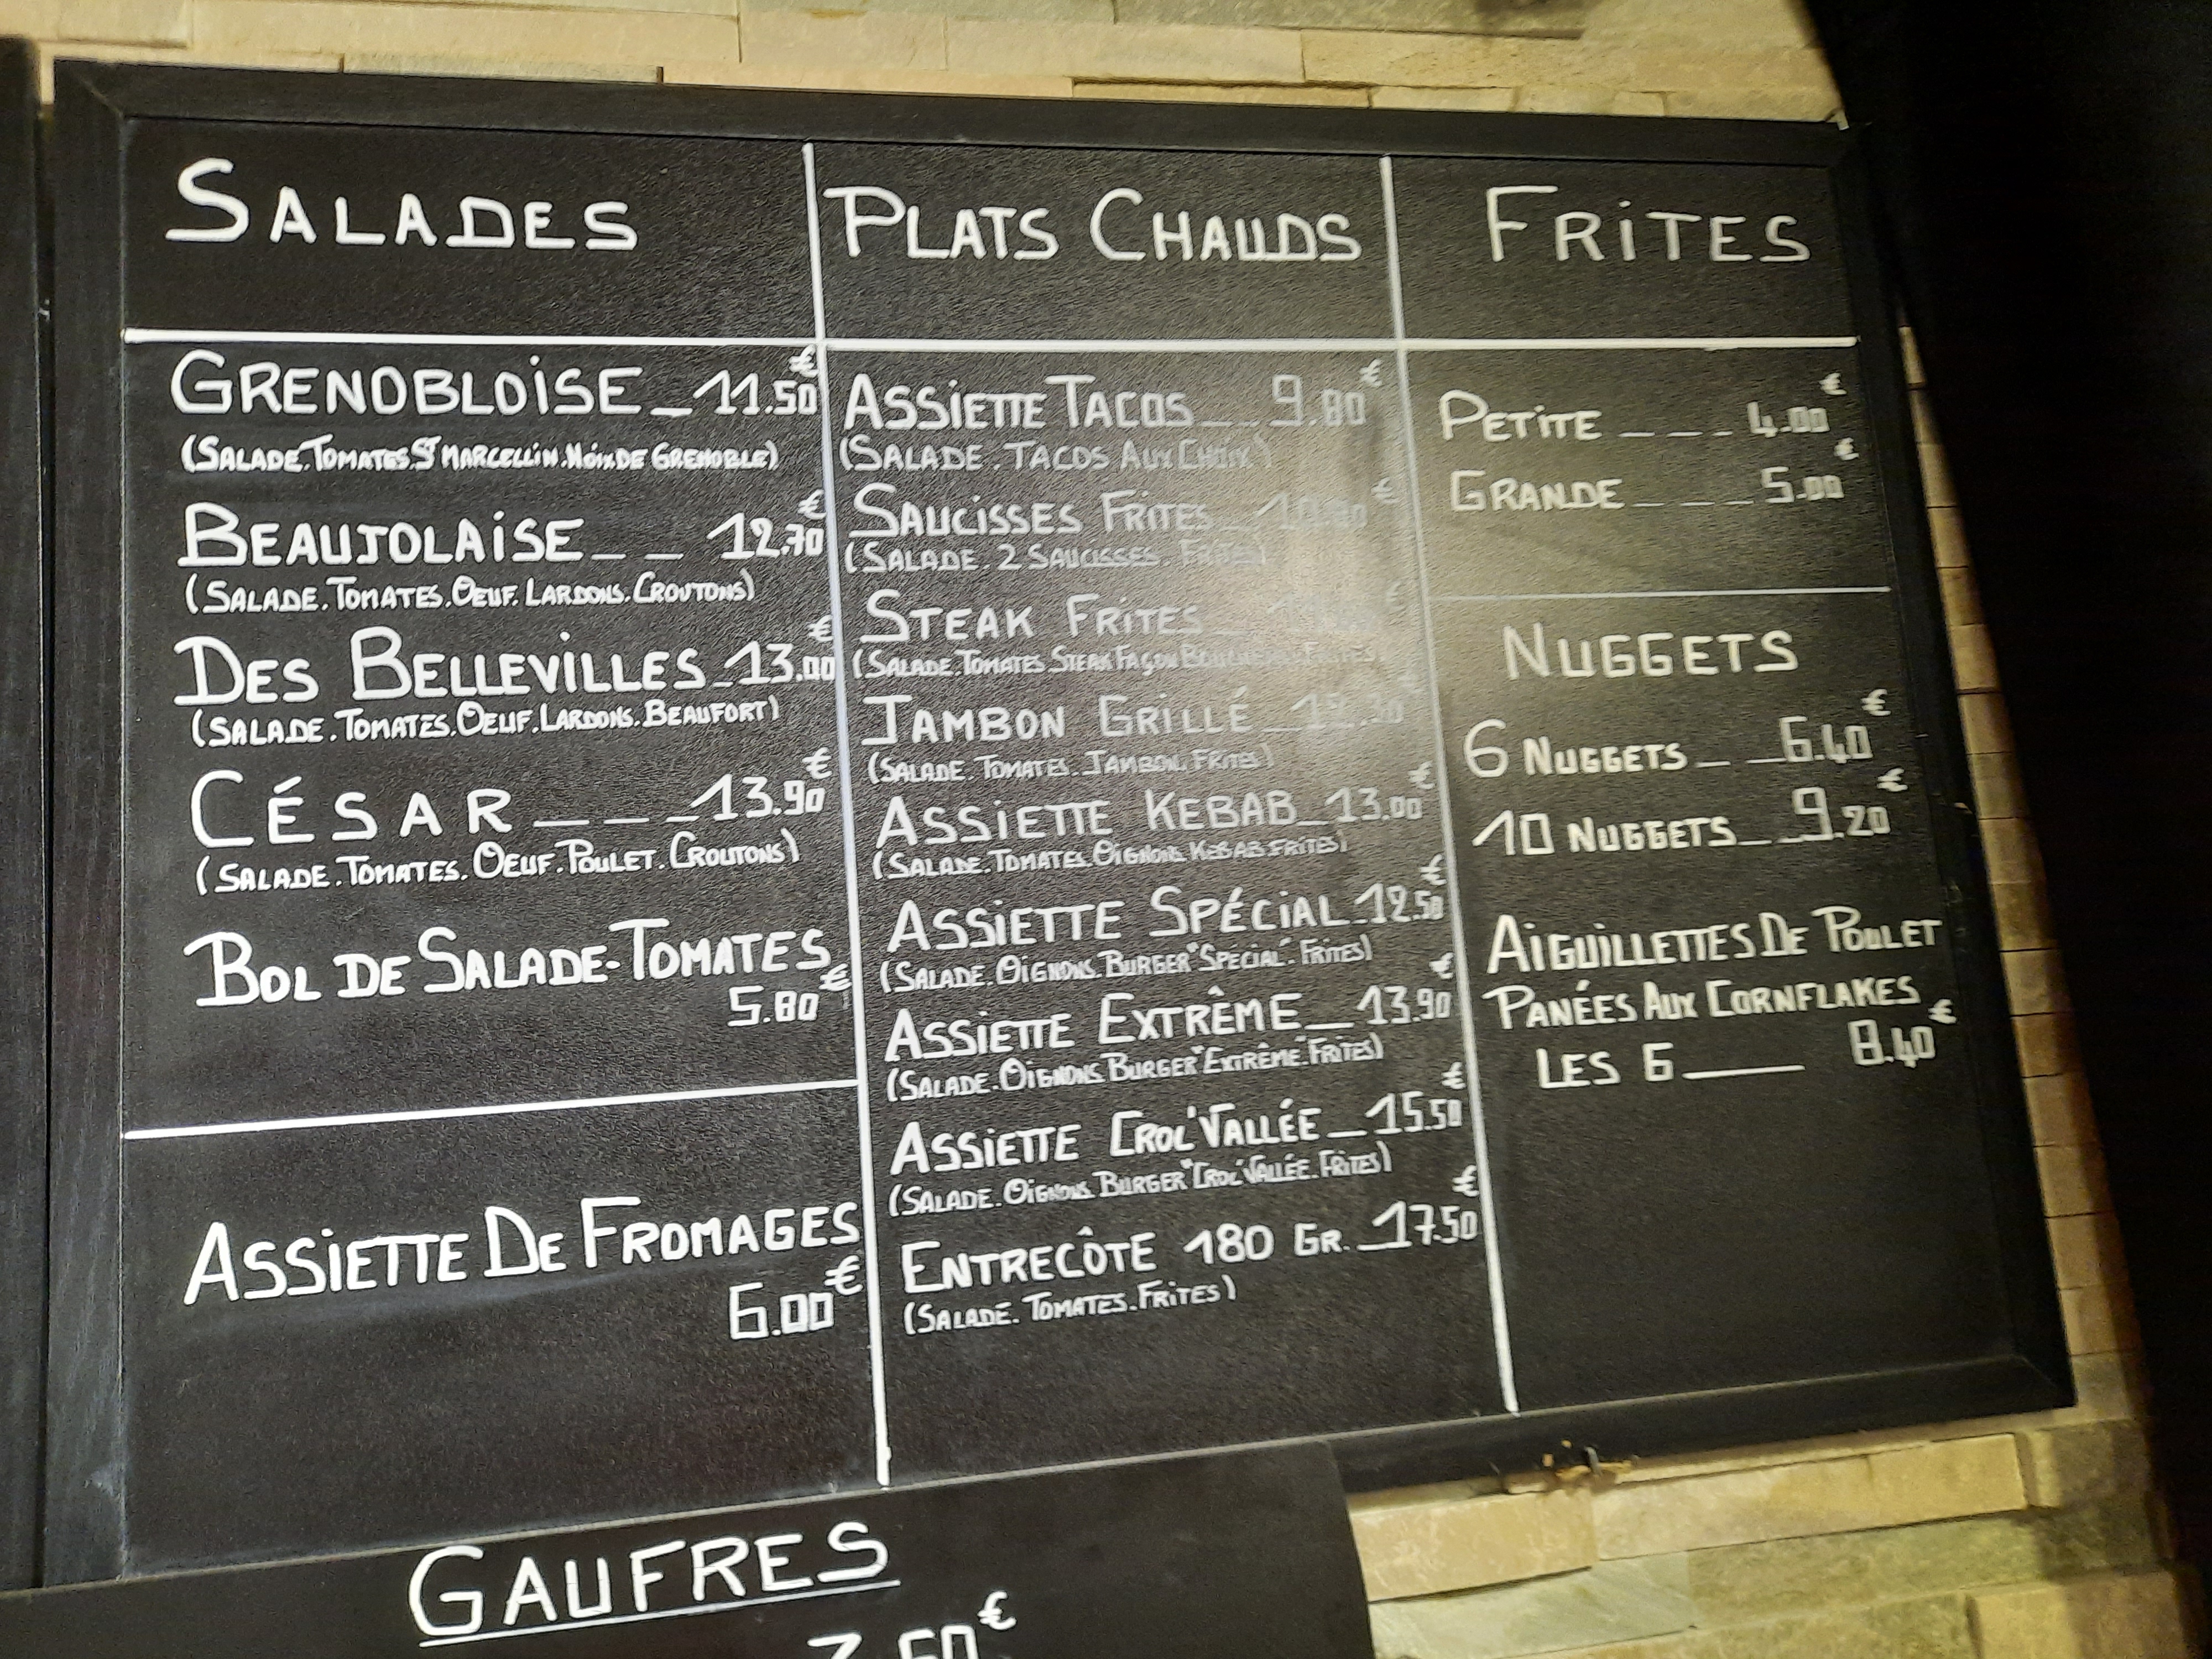 SALADES
GRENOBLOISE _ 11.50€
(SALADE.TOMATES.ST MARCELLIN.NOIX DE GRENOBLE)
BEAUJOLAISE _ _ 12.70€
(SALADE.TOMATES.OEUF.LARDONS.CROUTONS)
DES BELLEVILLES _ 13.00€
(SALADE.TOMATES.OEUF.LARDONS.BEAUFORT)
CÉSAR _ _ _ _ 13.90€
(SALADE.TOMATES.OEUF.POULET.CROUTONS)
BOL DE SALADE-TOMATES
5.80€
ASSIETTE DE FROMAGES
6.00€
PLATS CHAUDS
ASSIETTE TACOS _ _ 9.80€
(SALADE.TACOS AUX CHOIX)
SAUCISSES FRITES €
(SALADE.2 SAUCISSES.FRITES)
STEAK FRITES €
(SALADE.TOMATES.STEAK FAÇON FRITES)
JAMBON GRILLÉ
(SALADE.TOMATES.JAMBON.FRITES)
ASSIETTE KEBAB _ 13.00€
(SALADE.TOMATES.OIGNONS.KEBAB.FRITES)
ASSIETTE SPÉCIAL _ 12.50€
(SALADE.OIGNONS.BURGER "SPÉCIAL".FRITES)
ASSIETTE EXTRÊME _ 13.90€
(SALADE.OIGNONS.BURGER "EXTRÊME".FRITES)
ASSIETTE CROC'VALLÉE _ 15.50€
(SALADE.OIGNONS.BURGER "CROC'VALLÉE.FRITES)
ENTRECÔTE 180 GR. _ 17.50€
(SALADE.TOMATES.FRITES)
FRITES
PETITE _ _ _ 4.00€
GRANDE _ _ _ 5.00€
NUGGETS
6 NUGGETS _ _ 6.40€
10 NUGGETS _ _ 9.20€
AIGUILLETTES DE POULET
PANÉES AUX CORNFLAKES
LES 6 ____ 8.40€
GAUFRES